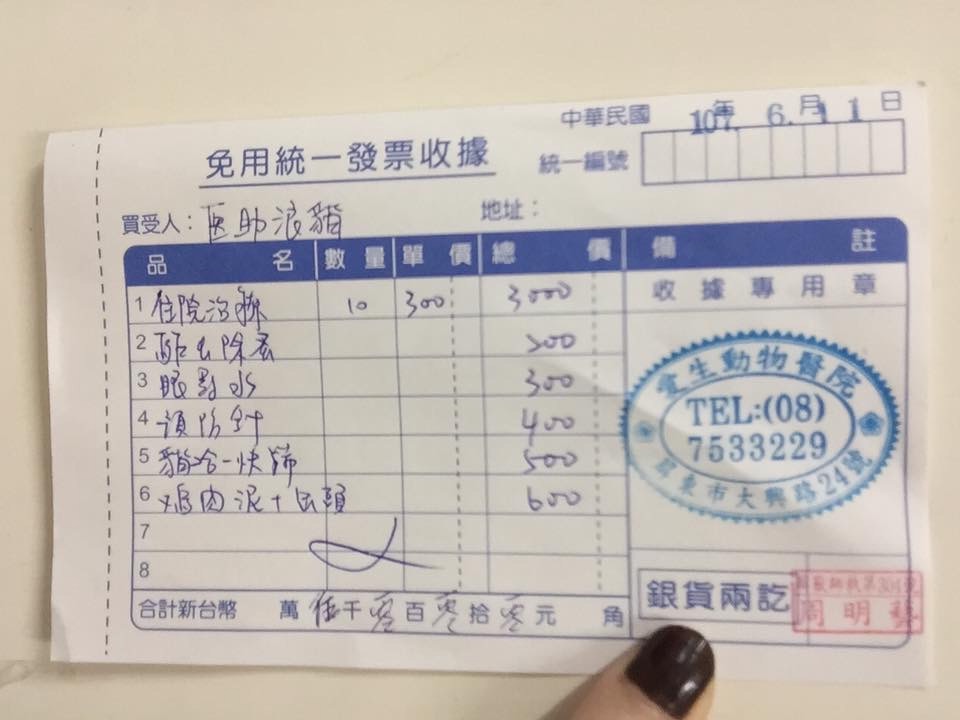 中華民國 107年 6.月11日
免用統一發票收據
統一編號
買受人：医助浪貓 地址：
品名 數量 單價 總價 備註
1 住院治療 10 300 3000 收據專用章
2 驅虫除蚤 200
3 眼藥水 300
4 預防針 400
5 貓合一快篩 500
6 鸡肉泥+缶頭 600
7
8
生動物醫院
TEL:(08)
7533229
屏東市大興路24號
合計新台幣 萬伍千零百零拾零元 角
銀貨兩訖
周明藝